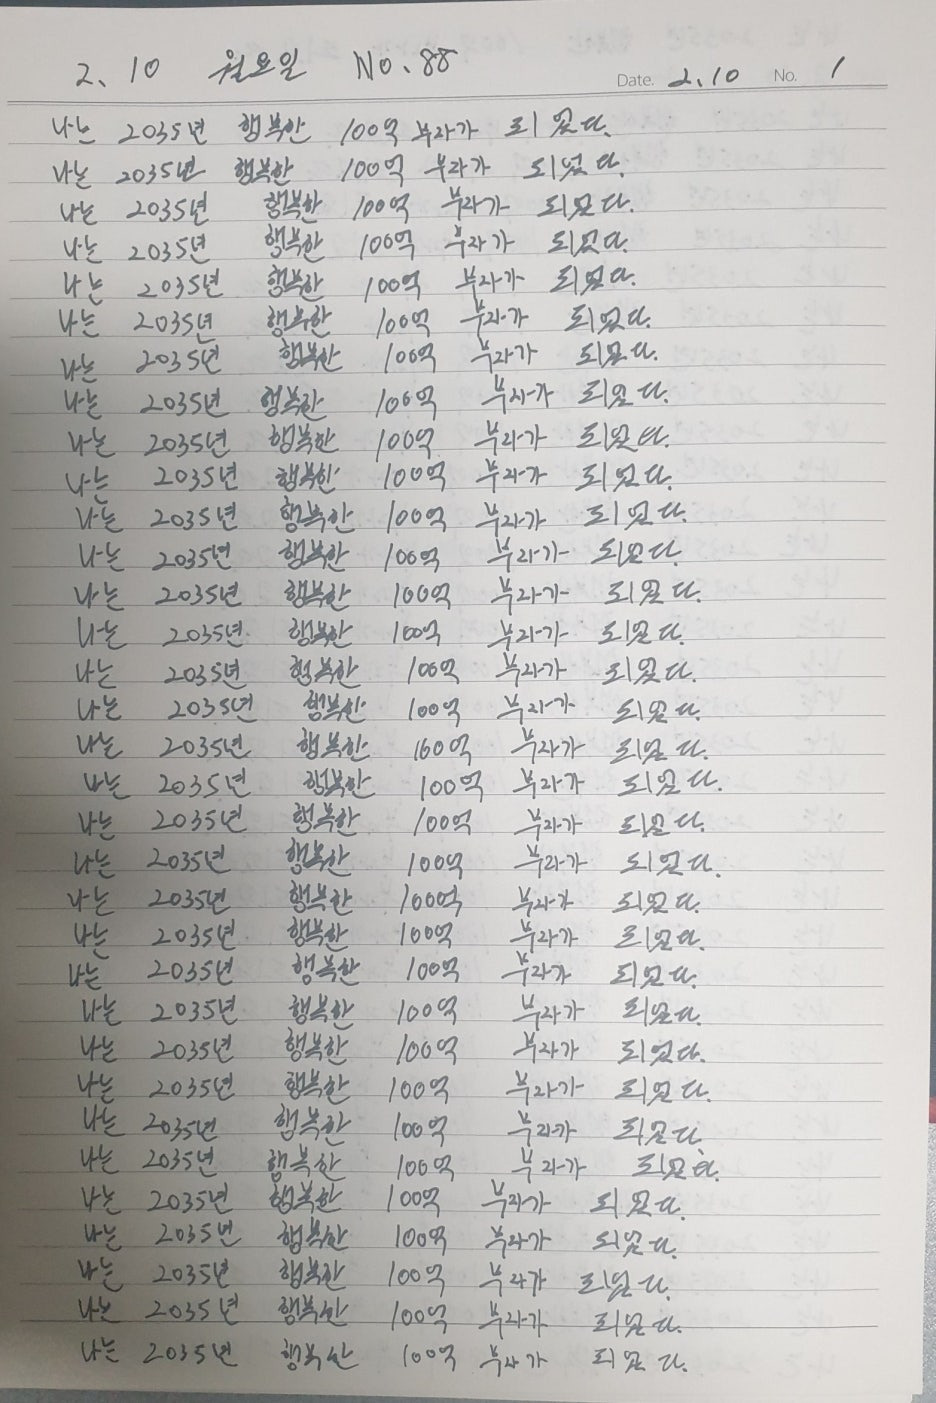 2. 10 월요일 No. 88
Date. 2.10 No. 1
나는 2035년 행복한 100억 부자가 되었다.
나는 2035년 행복한 100억 부자가 되었다.
나는 2035년 행복한 100억 부자가 되었다.
나는 2035년 행복한 100억 부자가 되었다.
나는 2035년 행복한 100억 부자가 되었다.
나는 2035년 행복한 100억 부자가 되었다.
나는 2035년 행복한 100억 부자가 되었다.
나는 2035년 행복한 100억 부자가 되었다.
나는 2035년 행복한 100억 부자가 되었다.
나는 2035년 행복한 100억 부자가 되었다.
나는 2035년 행복한 100억 부자가 되었다.
나는 2035년 행복한 100억 부자가 되었다.
나는 2035년 행복한 100억 부자가 되었다.
나는 2035년 행복한 100억 부자가 되었다.
나는 2035년 행복한 100억 부자가 되었다.
나는 2035년 행복한 100억 부자가 되었다.
나는 2035년 행복한 100억 부자가 되었다.
나는 2035년 행복한 100억 부자가 되었다.
나는 2035년 행복한 100억 부자가 되었다.
나는 2035년 행복한 100억 부자가 되었다.
나는 2035년 행복한 100억 부자가 되었다.
나는 2035년 행복한 100억 부자가 되었다.
나는 2035년 행복한 100억 부자가 되었다.
나는 2035년 행복한 100억 부자가 되었다.
나는 2035년 행복한 100억 부자가 되었다.
나는 2035년 행복한 100억 부자가 되었다.
나는 2035년 행복한 100억 부자가 되었다.
나는 2035년 행복한 100억 부자가 되었다.
나는 2035년 행복한 100억 부자가 되었다.
나는 2035년 행복한 100억 부자가 되었다.
나는 2035년 행복한 100억 부자가 되었다.
나는 2035년 행복한 100억 부자가 되었다.
나는 2035년 행복한 100억 부자가 되었다.